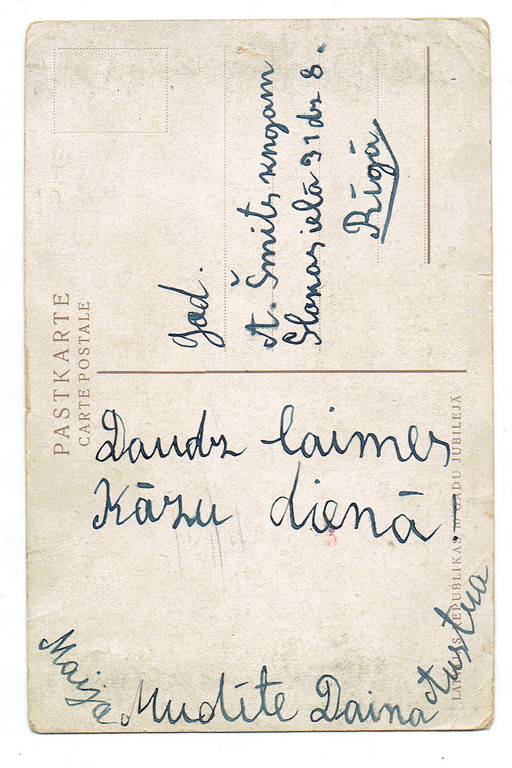 PASTKARTE
CARTE POSTALE
God.
A. Šmits kngam
Slonas ielā 31 dz 8.
Rīgā
Daudz laimes
Kāzu dienā.
Maija Mudīte Daina Austra
LATVIJAS REPUBLIKAS 10 GADU JUBILEJĀ